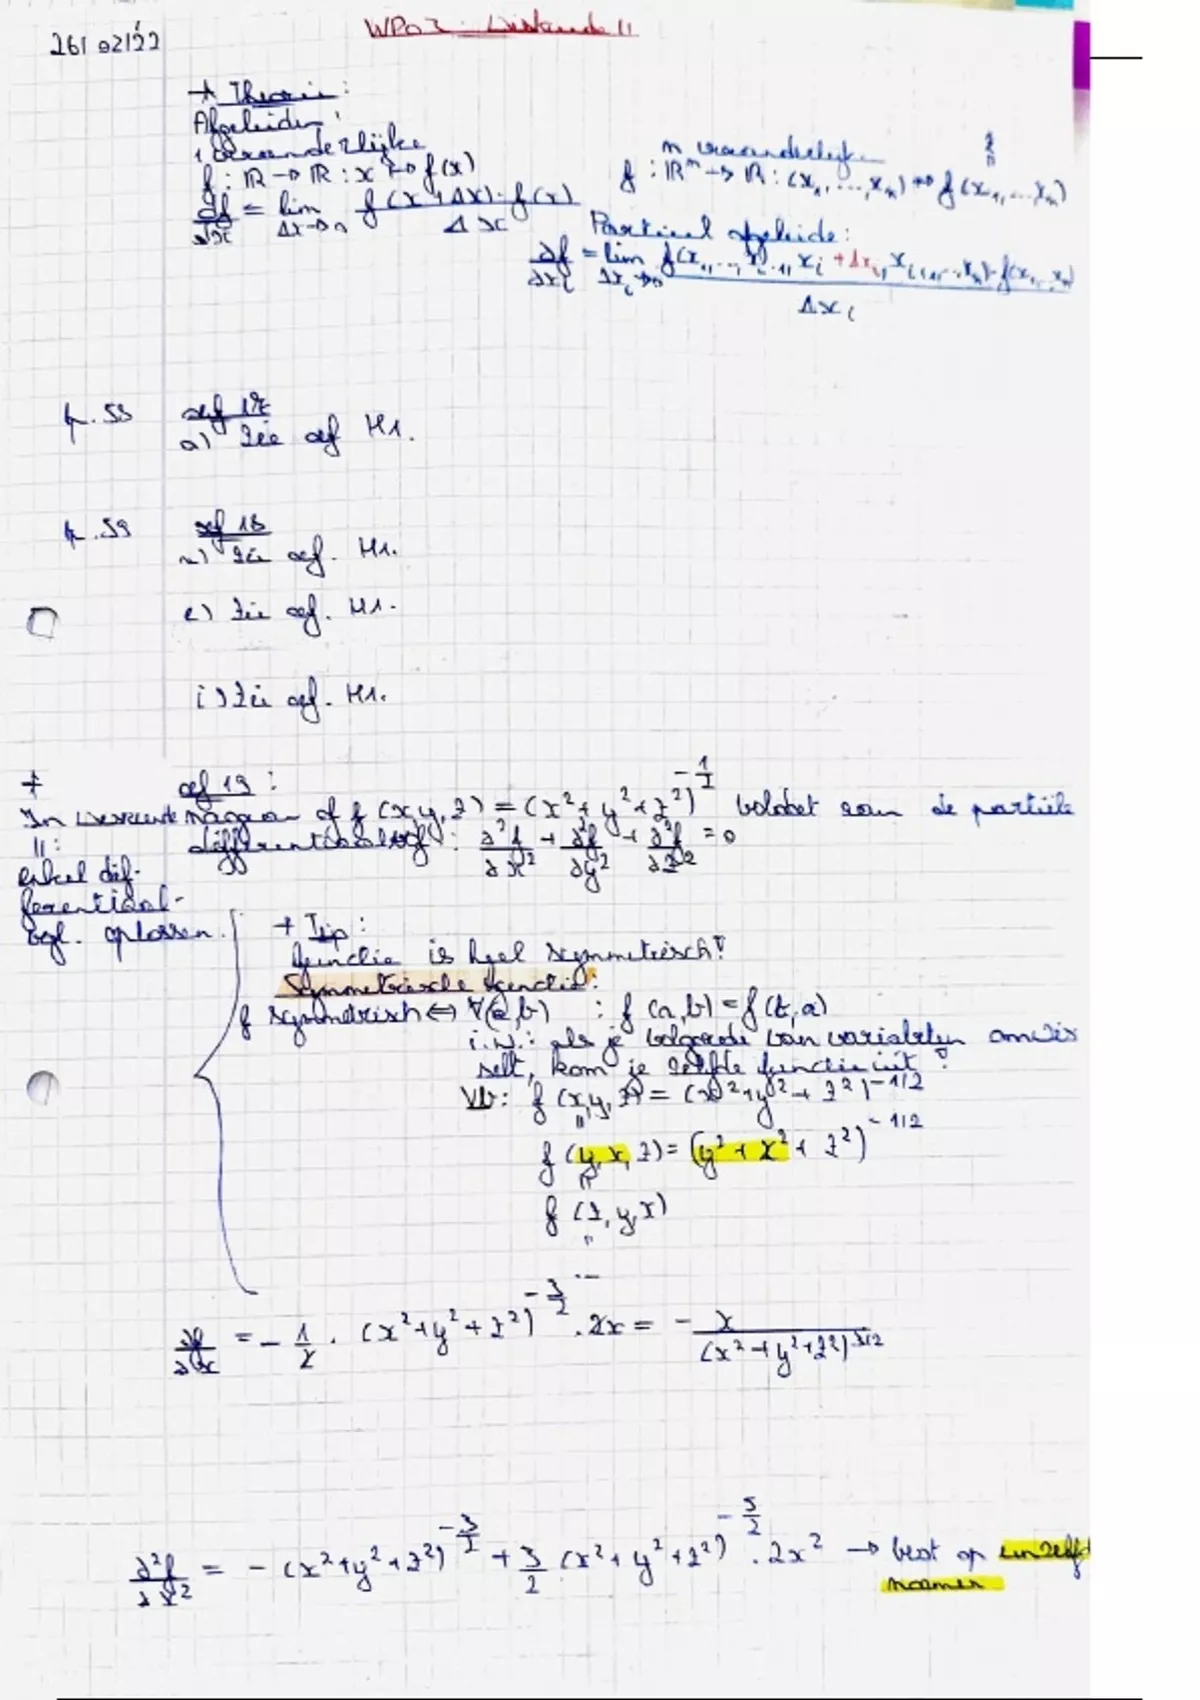 26/02/22
WPO 3 : Wiskunde II
→ Theorie :
Afgeleiden :
1 veranderlijke
f : ℝ → ℝ : x ↦ f(x)
df/dx = lim Δx→0 (f(x+Δx) - f(x)) / Δx
n veranderlijken
f : ℝⁿ → ℝ : (x₁, ..., xₙ) ↦ f(x₁, ..., xₙ)
Partieel afgeleide :
∂f/∂xᵢ = lim Δxᵢ→0 (f(x₁, ..., xᵢ₋₁, xᵢ + Δxᵢ, xᵢ₊₁, ..., xₙ) - f(x₁, ..., xₙ)) / Δxᵢ
oef 17
a) Zie oef H1.
p. 59 oef 18
a) Zie oef. H1.
e) Zie oef. H1.
i) Zie oef. H1.
oef 19 :
In Wiskunde
II :
enkel dif-
ferentiaal-
vgl. oplossen.
Nagaan of f(x,y,z) = (x² + y² + z²)^(-1/2) voldoet aan de partiële
differentiaalvgl : ∂²f/∂x² + ∂²f/∂y² + ∂²f/∂z² = 0
→ Tip :
functie is heel symmetrisch!
Symmetrische functie :
f symmetrisch ⇔ ∀(a,b) : f(a,b) = f(b,a)
i.w. : als je volgorde van variabelen omwis
selt, kom je zelfde functie uit !
Vb : f(x,y,z) = (x² + y² + z²)^(-1/2)
"
f(y,x,z) = (y² + x² + z²)^(-1/2)
"
f(z,y,x)
"
...
∂f/∂x = - 1/2 . (x² + y² + z²)^(-3/2) . 2x = - x / (x² + y² + z²)^(3/2)
∂²f/∂x² = - (x² + y² + z²)^(-3/2) + 3/2 (x² + y² + z²)^(-5/2) . 2x² → best op eenzelfd
noemer